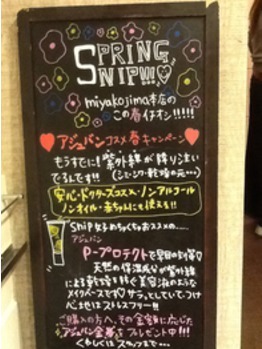 SPRING,
SNIP!!!♡
miyakojima本店の
この春イチオシ!!!!!
♥アジュバンコスメ春キャンペーン♥
もうすでに!紫外線が降り注い
でるんです!!(シミ・シワ・乾燥の元…)
安心・ドクターズコスメ・ノンアルコール
ノンオイル・赤ちゃんにも使える!!
Snip女子めちゃくちゃおススメの……
アジュバン
P-プロテクトで早目の対策♡
天然の保湿成分が紫外線
による乾燥を防ぐ美容液のような
メイクベースです♡サラッとしていてつけ
心地はストレスフリー!!
ご購入の方へ、その金額に応じた
アジュバン金券をプレゼント中!!!
くわしくはスタッフまで…